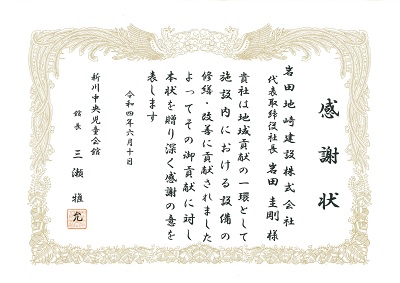 感謝状
岩田地崎建設株式会社
代表取締役社長 岩田圭剛様
貴社は地域貢献の一環として
施設内における設備の
修繕・改善に貢献されました
よってその御貢献に対し
本状を贈り深く感謝の意を
表します
令和四年六月十日
新川中央児童会館
館長 三瀬雅允